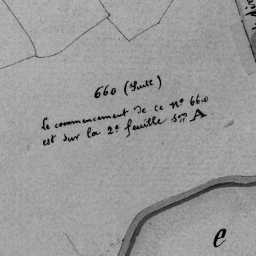 660 (Suite)
Le commencement de ce n° 660
est sur la 2e feuille Son A
e